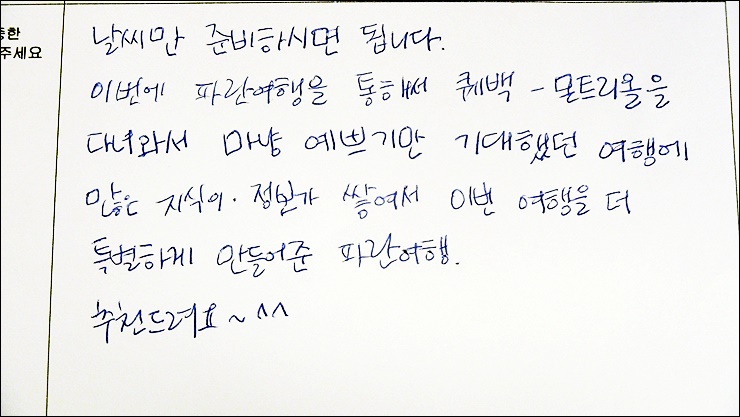 중한
주세요
날씨만 준비하시면 됩니다.
이번에 파란여행을 통해서 퀘백 - 몬트리올을
다녀와서 마냥 예쁘기만 기대했던 여행에
많은 지식이·정보가 쌓여서 이번 여행을 더
특별하게 만들어준 파란여행.
추천드려요~^^